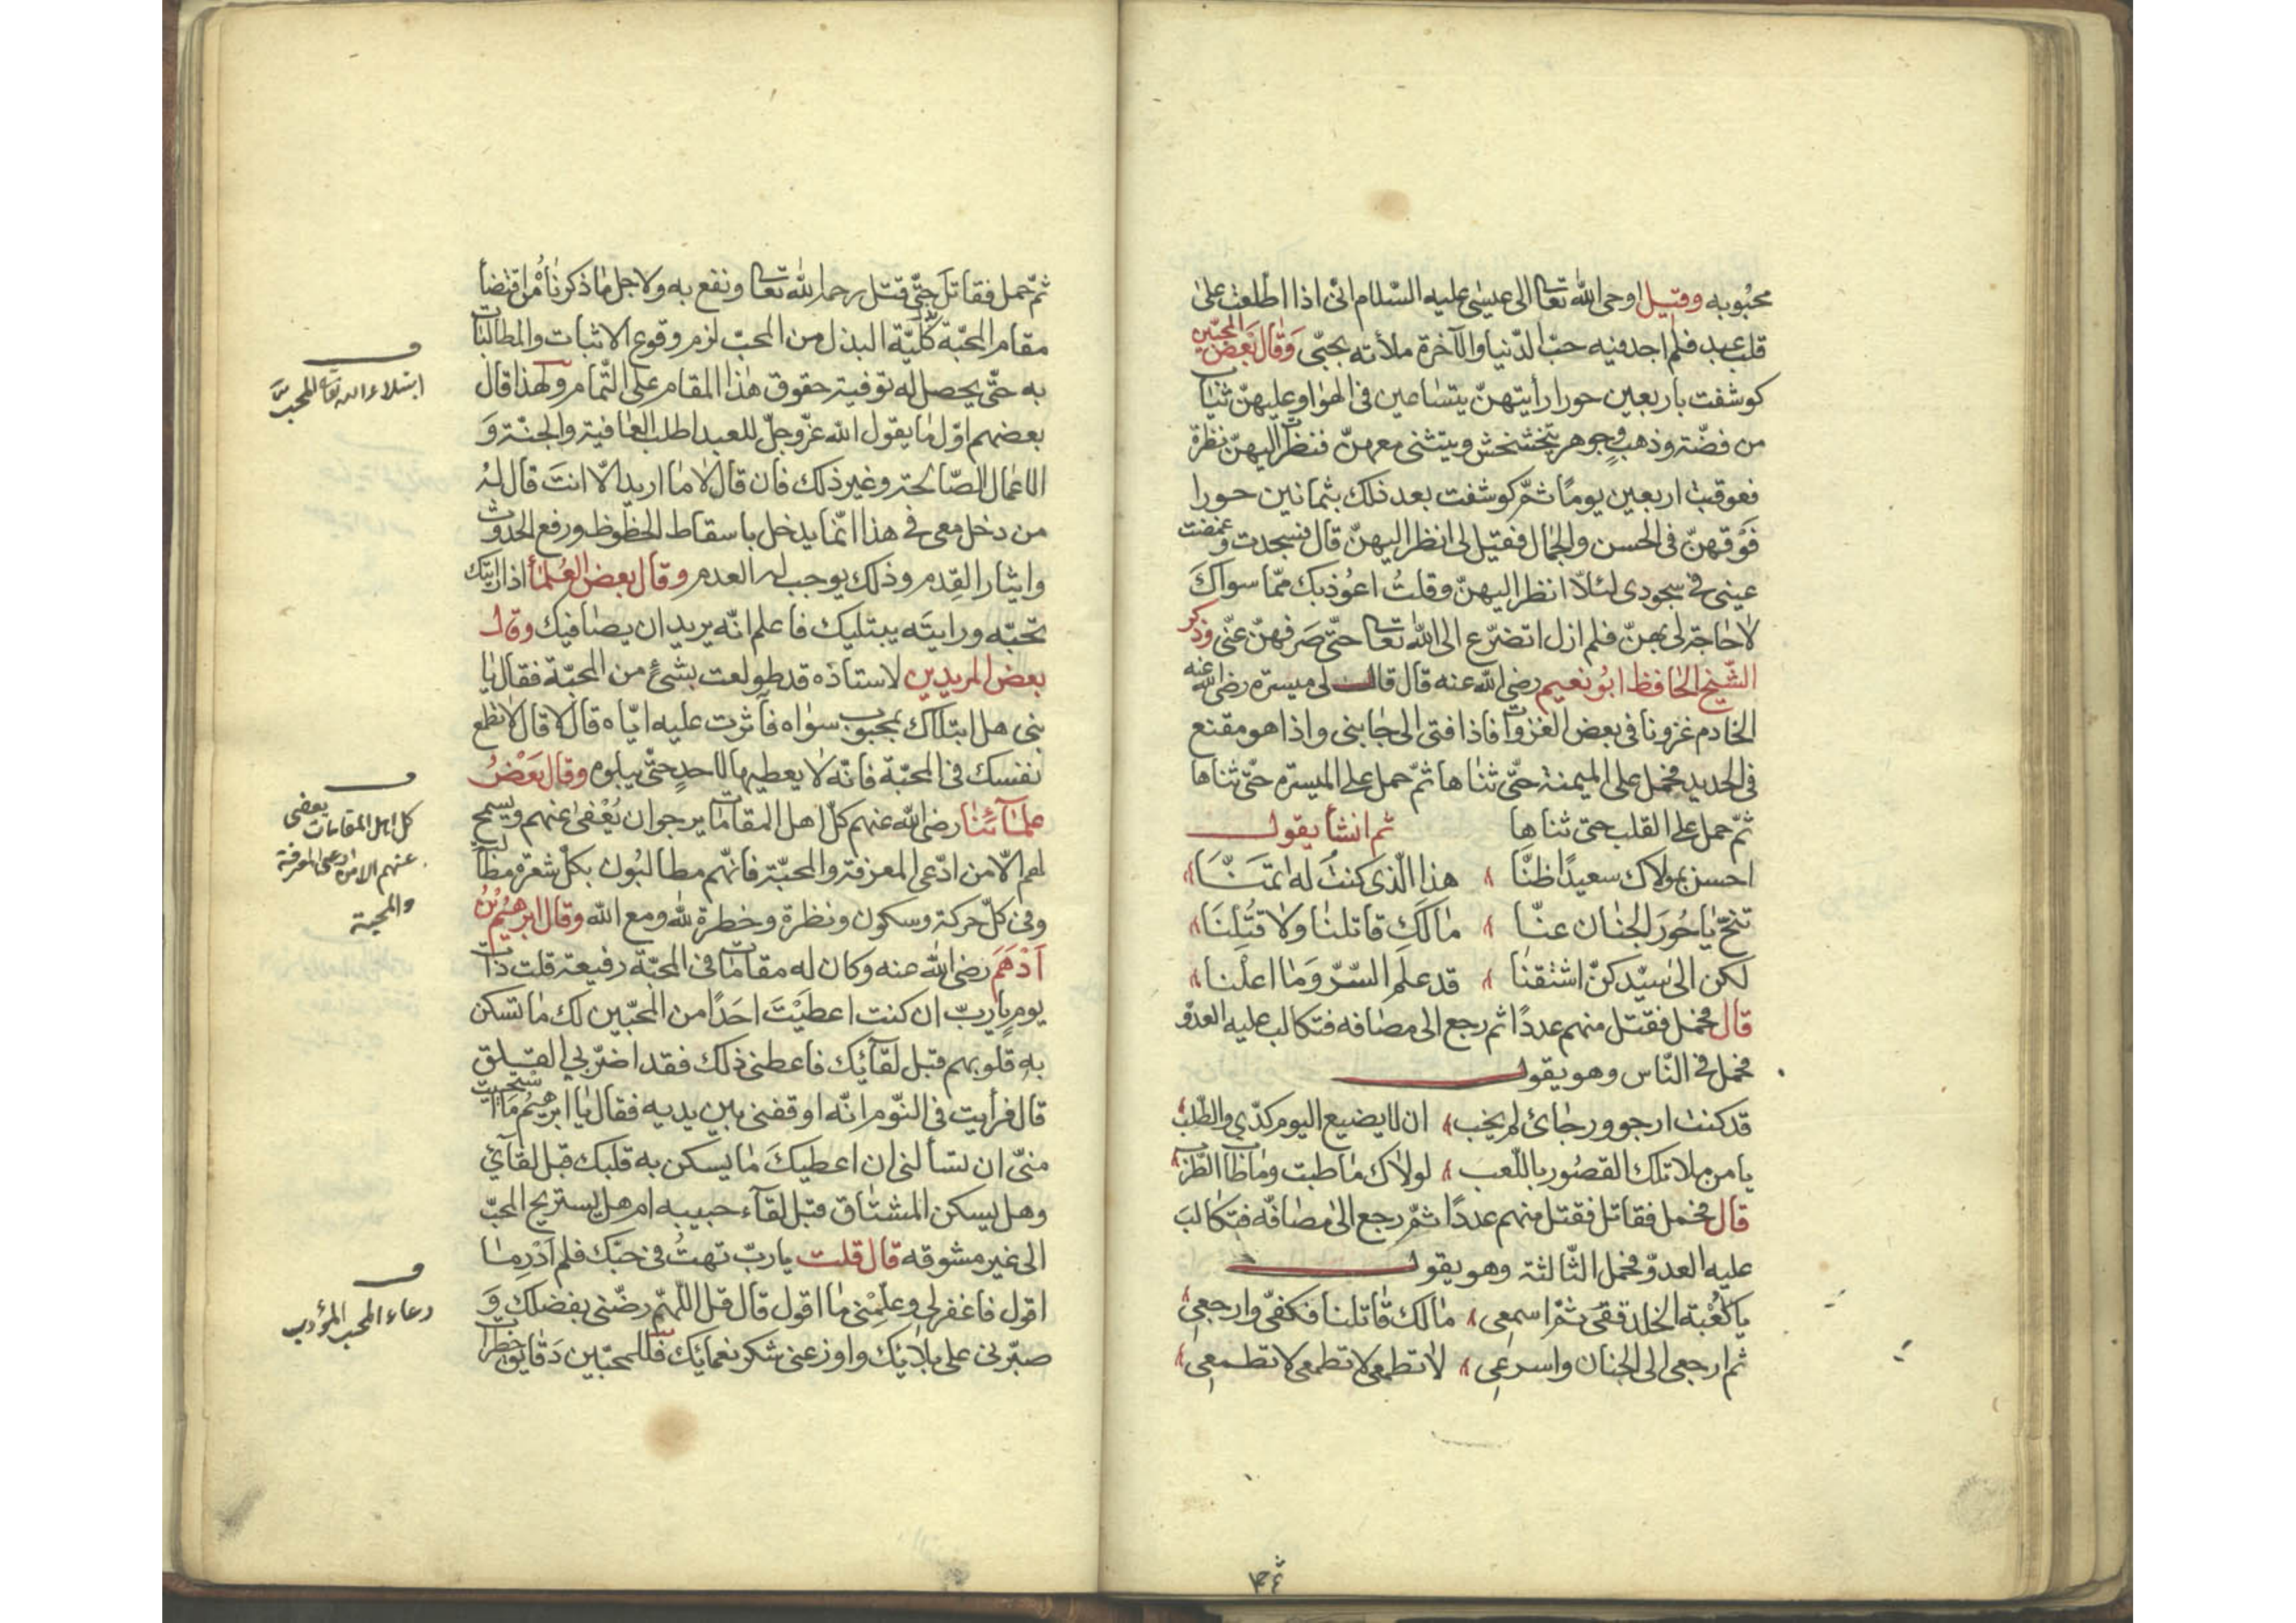 محبوبه وقيل اوحى الله تعالى الى عيسى عليه السلام انى اذا اطلعت على
قلب عبد فلم اجد فيه حب الدنيا والآخرة ملأته بحبى وقال بعض المحبين
كوشفت باربعين حورا رأيتهن يتساعين فى الهوا وعليهن ثياب
من فضة وذهب وجوهر يتخشخش ويتثنى معهن فنظرت اليهن نظرة
فعوقبت اربعين يوما ثم كوشفت بعد ذلك بثمانين حورا
فوقهن فى الحسن والجمال فقيل لى انظر اليهن قال فسجدت وغمضت
عينى فى سجودى لئلا انظر اليهن وقلت اعوذ بك مما سواك
لا حاجة لى بهن فلم ازل اتضرع الى الله تعالى حتى صرفهن عنى وذكر
الشيخ الحافظ ابو نعيم رضى الله عنه قال قال لى ميسره رضى الله عنه
الخادم غزونا فى بعض الغزوات فاذا فتى الى جانبنى واذا هو مقنع
فى الحديد فحمل على الميمنة حتى ثناها ثم حمل على الميسرة حتى ثناها
ثم حمل على القلب حتى ثناها ثم انشأ يقول
احسن بمولاك سعيدا ظنا هذا الذى كنت له اتمنا
تنح يا حور الجنان عنا مالك قاتلنا ولا قتلنا
لكن الى سيدكن اشتقنا قد علم السر وما اعلنا
قال فحمل فقتل منهم عددا ثم رجع الى مصافه فتكالب عليه العدو
فحمل فى الناس وهو يقول
قد كنت ارجو ورجائ لم يخب ان لا يضيع اليوم كدى والطلب
يا من ملا تلك القصور باللعب لولاك ما طبت وما طاب الطرب
قال فحمل فقاتل فقتل منهم عددا ثم رجع الى مصافه فتكالب
عليه العدو فحمل الثالثة وهو يقول
يا كعبة الخلد قفى ثم اسمعى مالك قاتلنا فكفى وارجعى
ثم ارجعى الى الجنان واسرعى لا تطمعى لا تطمعى لا تطمعى
ثم حمل فقاتل حتى قتل رحمه الله تعالى ونفع به ولاجل ما ذكرناه من اقتضأ
مقام المحبة كلية البذل من المحب لزم وقوع الاثبات والمطالبات
به حتى يحصل له توفية حقوق هذا المقام على التمام ولهذا قال
بعضهم اول ما يقول الله عز وجل للعبد اطلب العافية والجنة و
الاعمال الصالحة وغير ذلك فان قال لا ما اريد الا انت قال له
من دخل معى فى هذا انما يدخل باسقاط الحظوظ ورفع الحدوث
وايثار القدم وذلك يوجب له العدم وقال بعض العلمأ اذا رايتك
تحبه ورايته يبتليك فاعلم انه يريد ان يصافيك وقال
بعض المريدين لاستاذه قد طولعت بشئ من المحبة فقال يا
بنى هل ابتلاك بمحبوب سواه فآثرت عليه اياه قال لا قال لا تطمع
نفسك فى المحبة فانه لا يعطيها لاحد حتى يبلوه وقال بعض
علمائنا رضى الله عنهم كل اهل المقامات يرجو ان يعفى عنهم ويسمح
لهم الا من ادعى المعرفة والمحبة فانهم مطالبون بكل شعرة مطالبة
وفى كل حركة وسكون ونظرة وخطرة لله ومع الله وقال ابرهيم بن
ادهم رضى الله عنه وكان له مقامات فى المحبة رفيعة قلت ذات
يوم يا رب ان كنت اعطيت احدا من المحبين لك ما تسكن
به قلوبهم قبل لقائك فاعطنى ذلك فقد اضر بى القلق
قال فرأيت فى النوم انه اوقفنى بين يديه فقال يا ابرهيم ما استحييت
منى ان تسألنى ان اعطيك ما يسكن به قلبك قبل لقآئ
وهل يسكن المشتاق قبل لقآء حبيبه ام هل يستريح المحب
الى غير مشوقه قال قلت يا رب تهت فى حبك فلم ادر ما
اقول فاغفر لى وعلمنى ما اقول قال قل اللهم رضنى بفضلك و
صبرنى على بلائك واوزعنى شكر نعمائك فللمحبين دقايق خطرات
ابتلاء الله تعالى للمحب
كل اهل المقامات يعفى
عنهم الا من ادعى المعرفة
والمحبة
دعاء المحب المؤدب